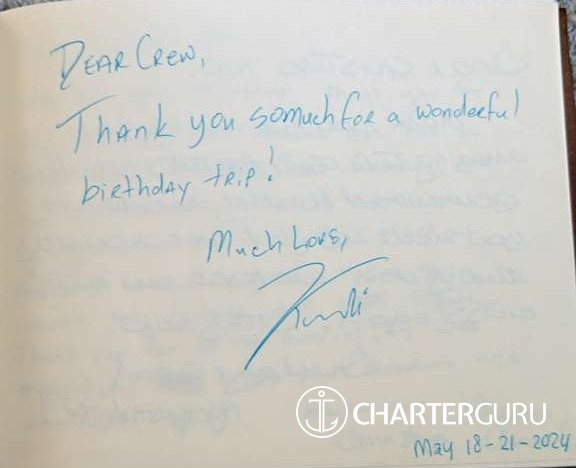 Dear Crew,
Thank you so much for a wonderful
birthday trip!
Much Love,
CHARTERGURU
May 18-21-2024